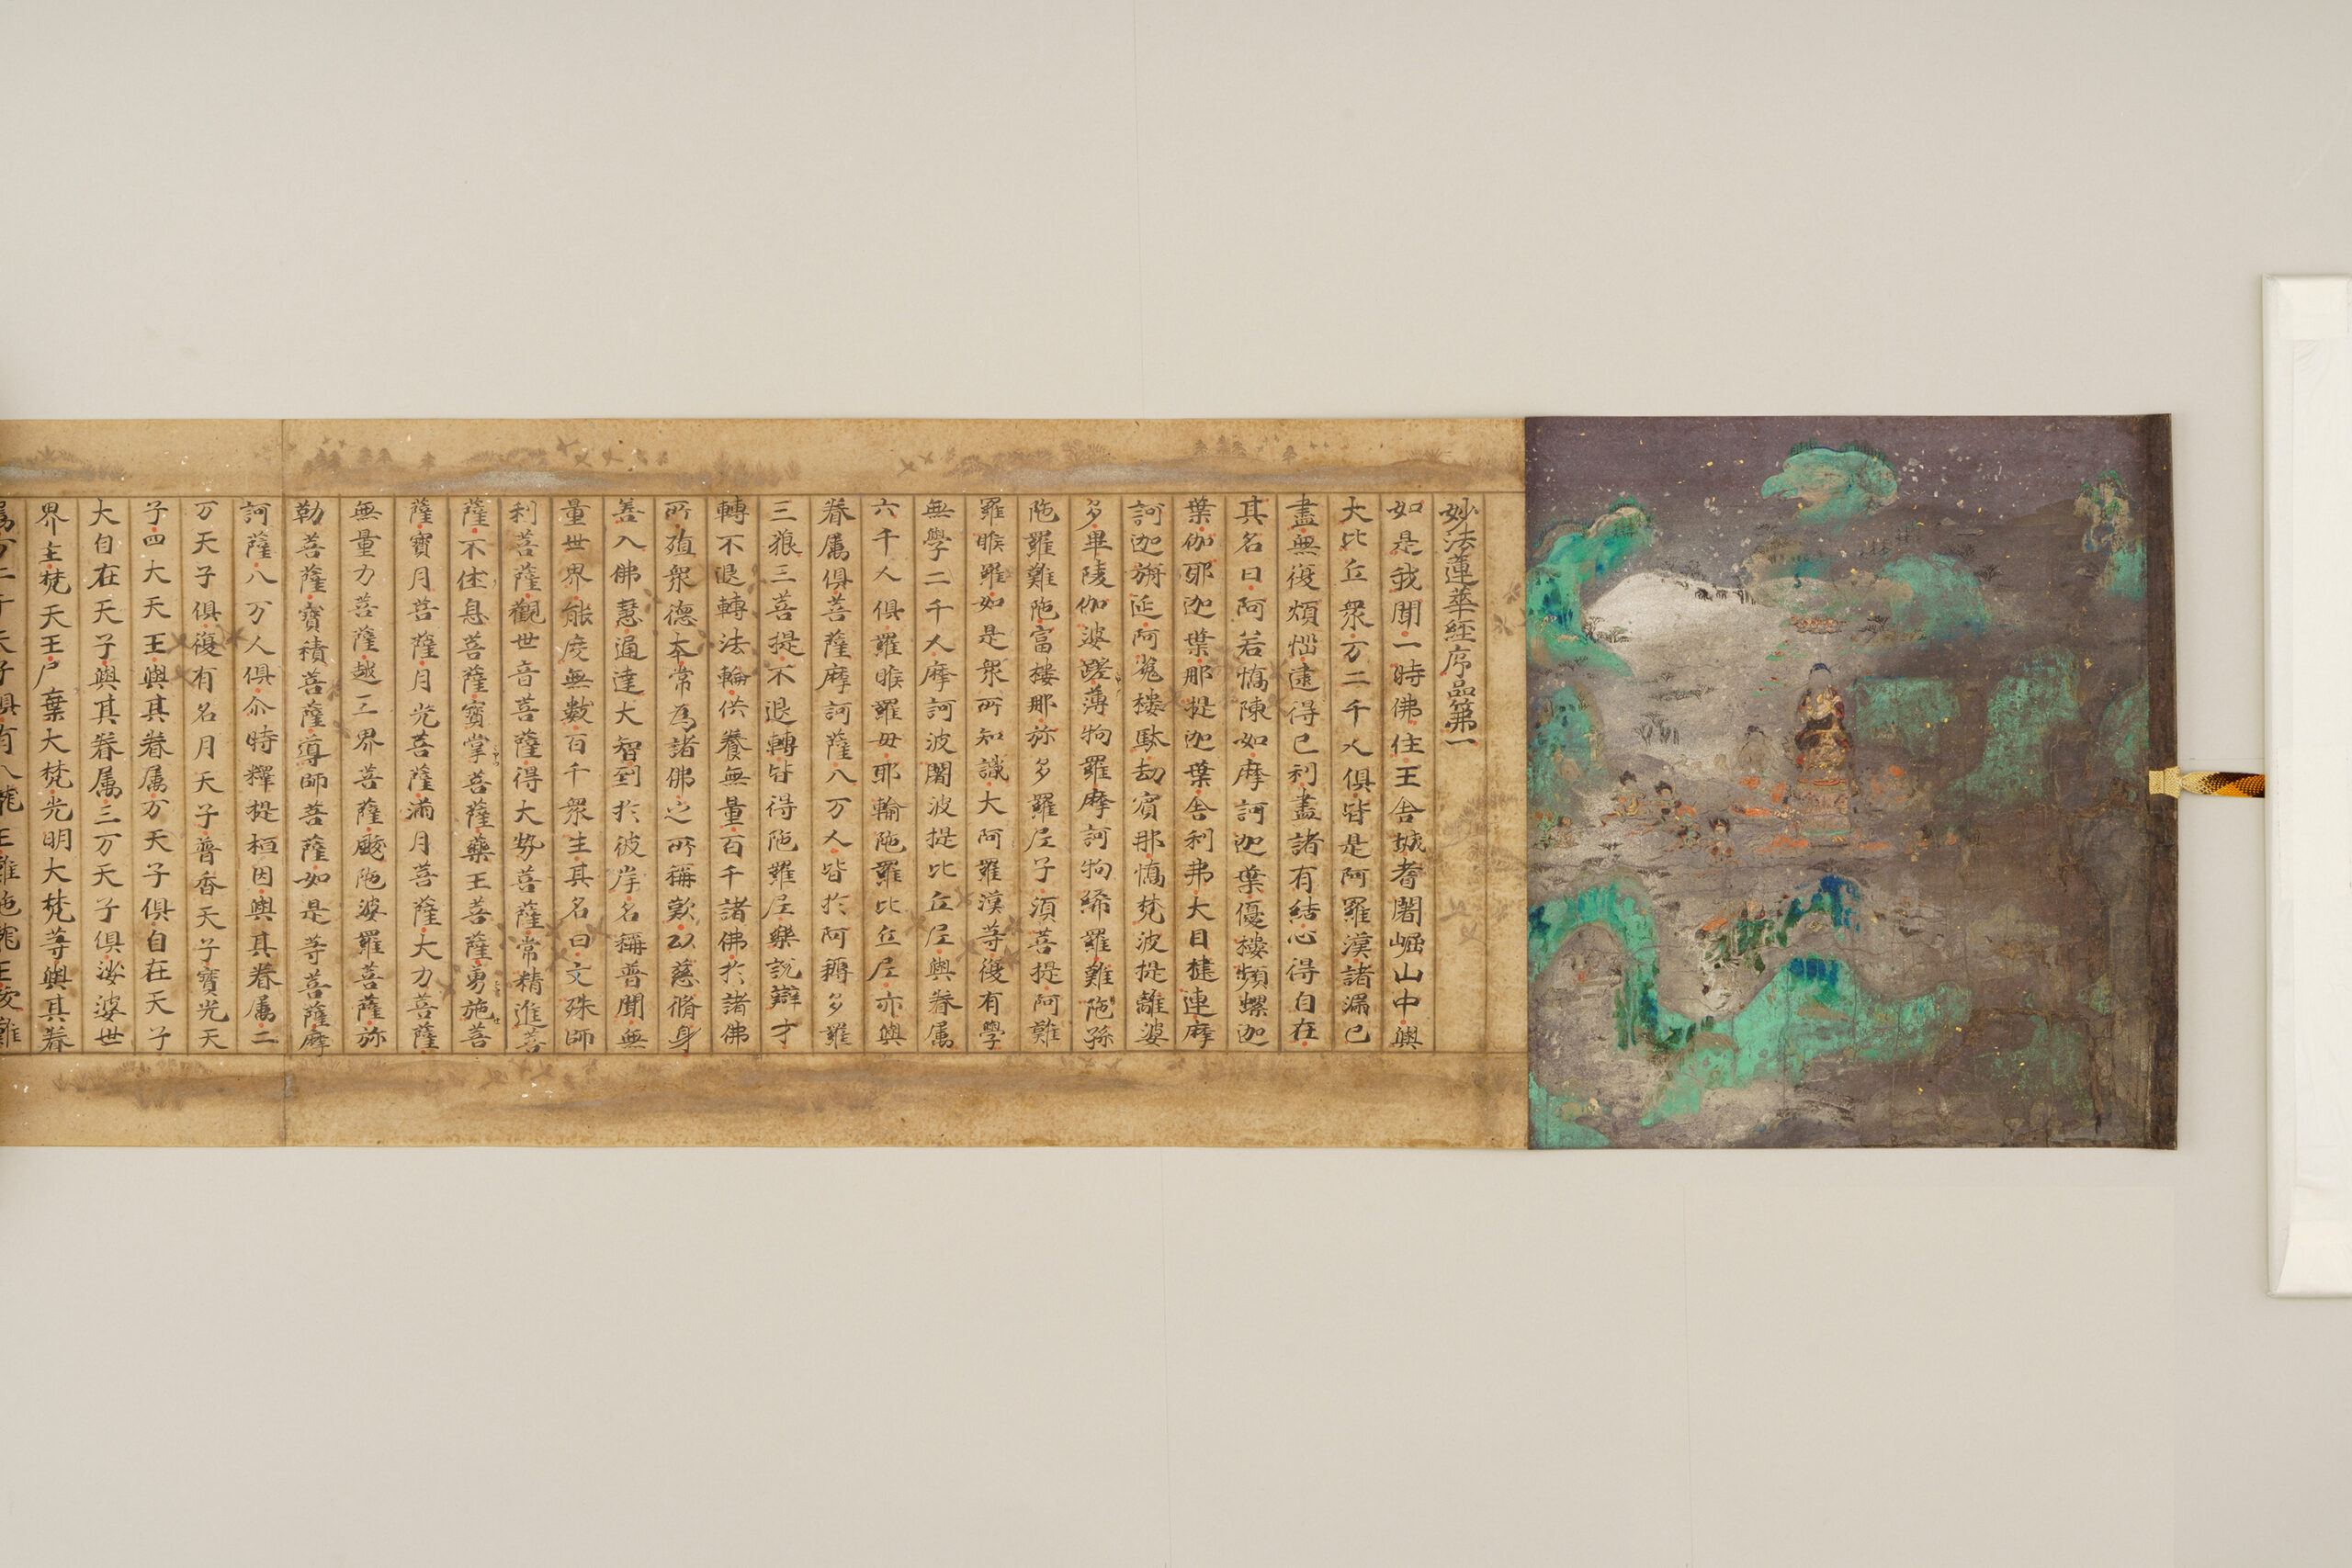 妙法蓮華經序品第一
如是我聞一時佛住王舍城耆闍崛山中與
大比丘衆万二千人俱皆是阿羅漢諸漏已
盡無復煩惱逮得已利盡諸有結心得自在
其名曰阿若憍陳如摩訶迦葉優樓頻螺迦
葉伽耶迦葉那提迦葉舍利弗大目揵連摩
訶迦旃延阿㝹樓馱劫賓那憍梵波提離婆
多畢陵伽婆蹉薄拘羅摩訶拘絺羅難陁孫
陁羅難陁富樓那弥多羅尼子須菩提阿難
羅睺羅如是衆所知識大阿羅漢等復有學
無學二千人摩訶波闍波提比丘尼與眷属
六千人俱羅睺羅母耶輸陁羅比丘尼亦與
眷属俱菩薩摩訶薩八万人皆於阿耨多羅
三藐三菩提不退轉皆得陁羅尼樂説辯才
轉不退轉法輪供養無量百千諸佛於諸佛
所殖衆德本常為諸佛之所稱歎以慈脩身
善入佛慧通達大智到於彼岸名稱普聞無
量世界能度無數百千衆生其名曰文殊師
利菩薩觀世音菩薩得大勢菩薩常精進菩
薩不休息菩薩寶掌菩薩藥王菩薩勇施菩
薩寶月菩薩月光菩薩滿月菩薩大力菩薩
無量力菩薩越三界菩薩颰陁婆羅菩薩弥
勒菩薩寶積菩薩導師菩薩如是等菩薩摩
訶薩八万人俱尒時釋提桓因與其眷属二
万天子俱復有名月天子普香天子寶光天
子四大天王與其眷属万天子俱自在天子
大自在天子與其眷属三万天子俱娑婆世
界主梵天王尸棄大梵光明大梵等與其眷
属万二千天子俱有八龍王難陁龍王跋難